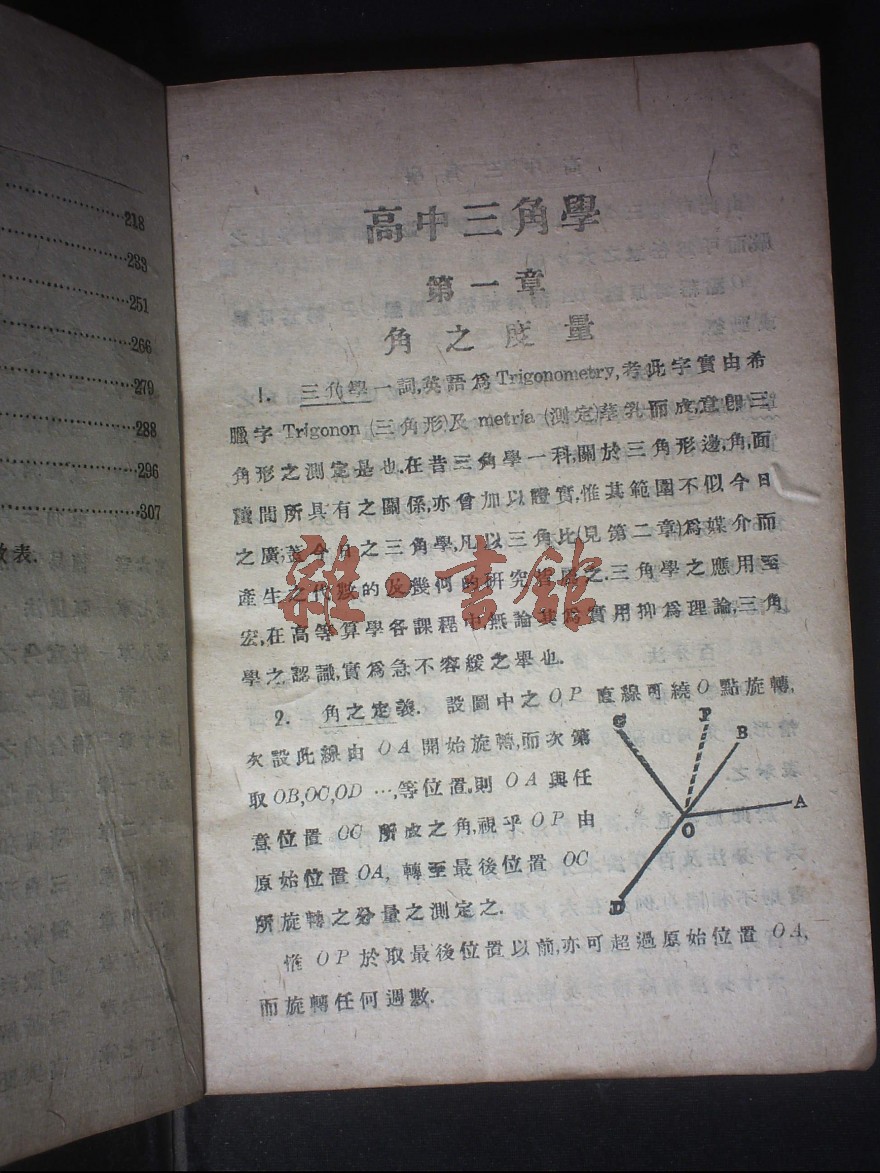 218
233
251
266
279
288
296
307
數表.
高中三角學
第一章
角之度量
1. 三角學一詞,英語爲Trigonometry,考此字實由希
臘字 Trigonon (三角形)及 metria (測定)孳乳而成,意卽三
角形之測定是也.在昔三角學一科,關於三角形邊,角,面
積間所具有之關係,亦曾加以體實,惟其範圍不似今日
之廣,蓋今日之三角學,凡以三角比(見第二章)爲媒介而
產生之代數的及幾何的研究皆屬之.三角學之應用至
宏,在高等算學各課程中無論其爲實用抑爲理論,三角
學之認識,實爲急不容緩之舉也.
2. 角之定義. 設圖中之OP 直線可繞O點旋轉,
次設此線由 OA 開始旋轉,而次第
取OB,OC,OD …,等位置,則 OA 與任
意位置 OC 所成之角,視乎 OP 由
原始位置OA, 轉至最後位置 OC
所旋轉之分量之測定之.
惟 OP 於取最後位置以前,亦可超過原始位置 OA,
而旋轉任何週數.
C
P
B
A
O
D
雜·書館